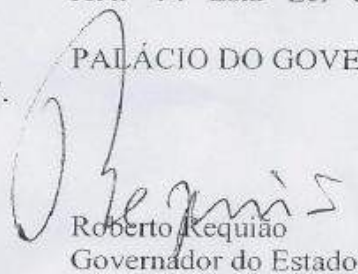 PALÁCIO DO GOVE
Requião
Roberto Requião
Governador do Estado